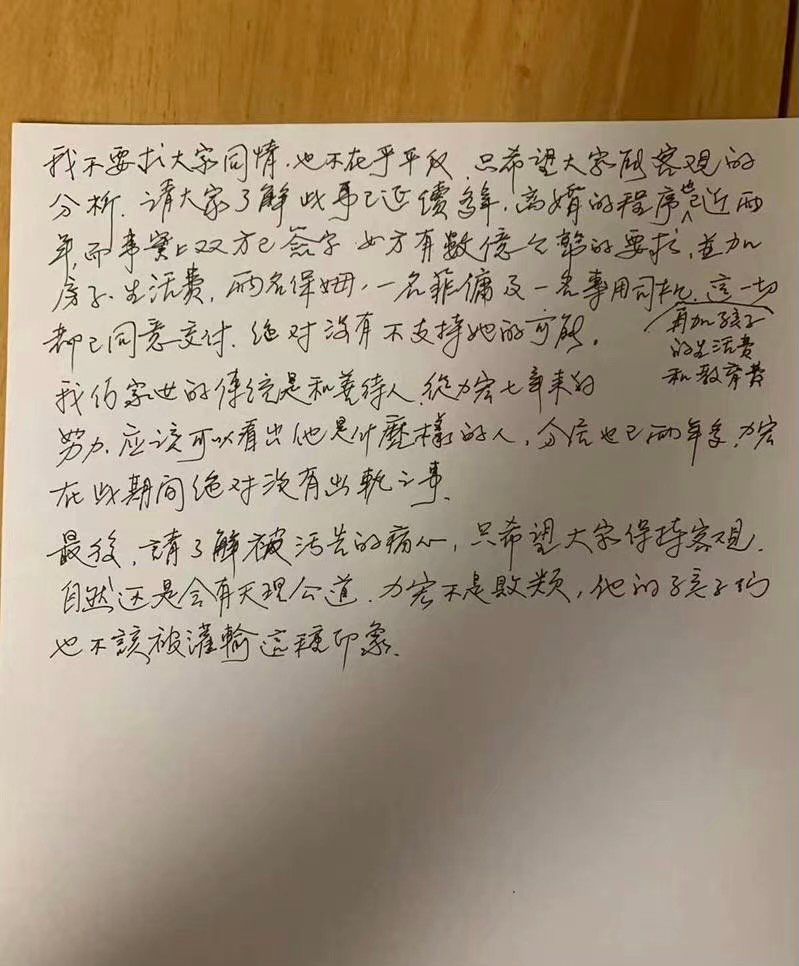 我不要求大家同情.也不在乎平反.只希望大家能客观的
分析.請大家了解此事已延續多年.离婚的程序也已近兩
年,而事實上双方已签字 女方有數億台幣的要求,並加
房子.生活費,兩名保姆,一名菲傭及一名專用司机.這一切
再加孩子
的生活费
和教育费
都已同意交付.绝对没有不支持她的可能。
我们家世的傳统是和善待人.從力宏七年来的
努力.应该可以看出他是什麼樣的人,分居也已兩年多.力宏
在此期间绝对没有出軌之事.
最後,請了解被污告的痛心,只希望大家保持客观.
自然还是会有天理公道.力宏不是敗类,他的孩子们
也不該被灌輸這種印象.